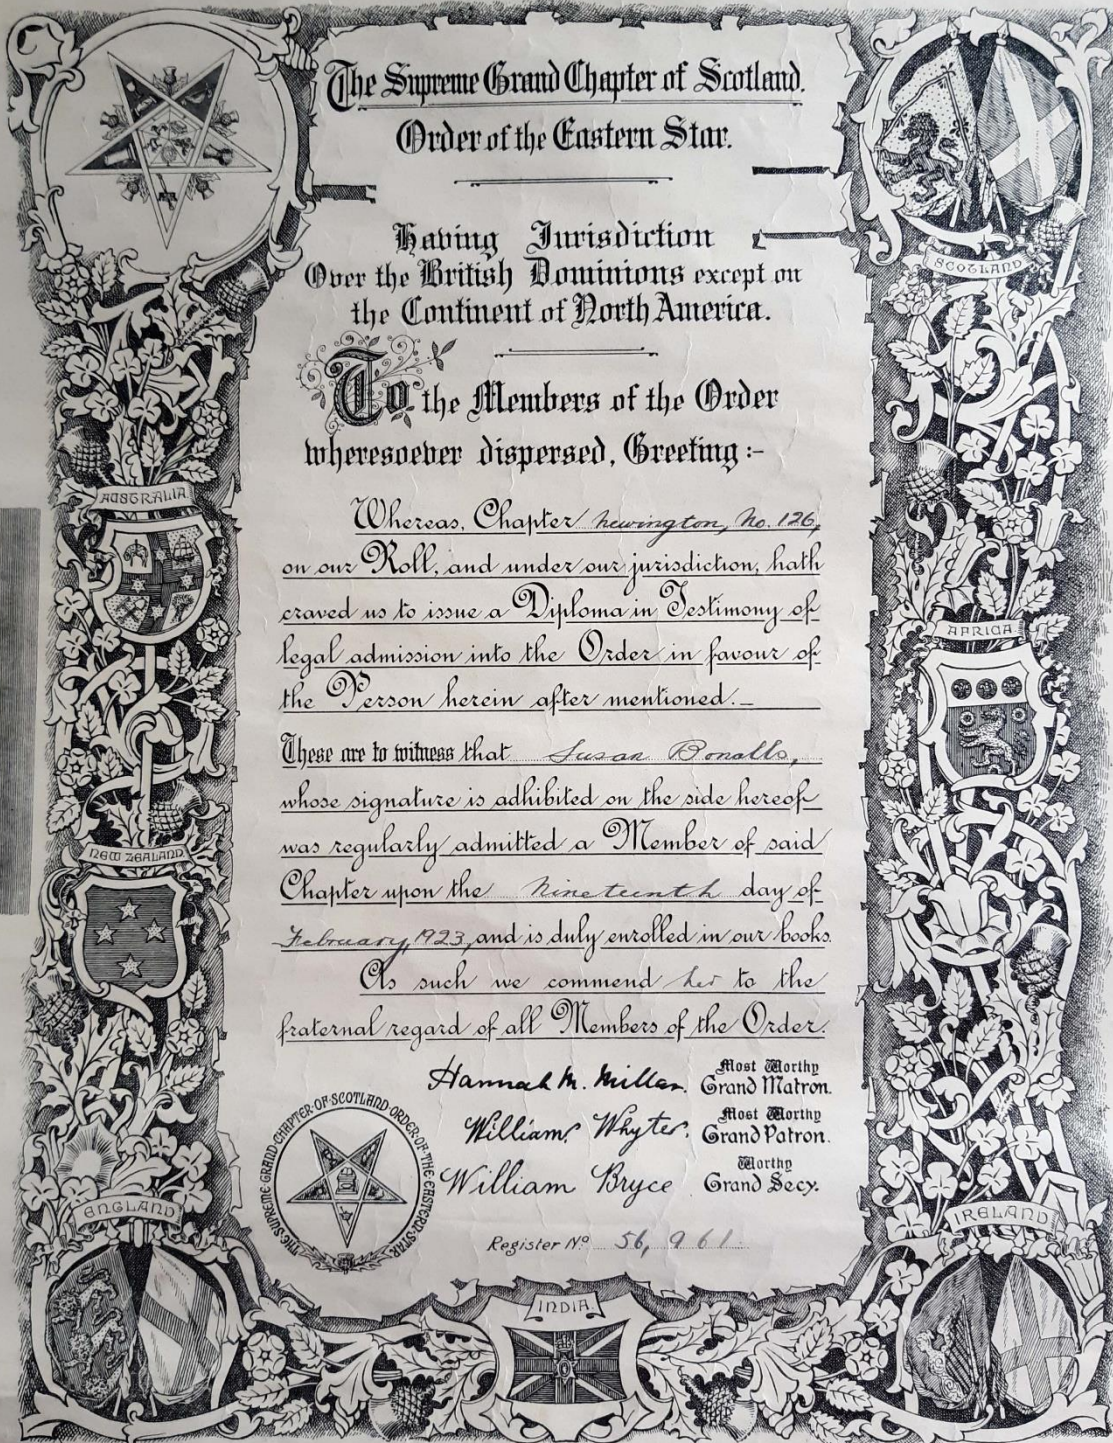 The Supreme Grand Chapter of Scotland.
Order of the Eastern Star.
Having Jurisdiction
Over the British Dominions except on
the Continent of North America.
To the Members of the Order
wheresoever dispersed, Greeting:-
Whereas, Chapter Newington, No. 126,
on our Roll, and under our jurisdiction, hath
craved us to issue a Diploma in Testimony of
legal admission into the Order in favour of
the Person herein after mentioned.
These are to witness that Susan
whose signature is adhibited on the side hereof
was regularly admitted a Member of said
Chapter upon the Nineteenth day of
February, 1923, and is duly enrolled in our books.
As such we commend her to the
fraternal regard of all Members of the Order.
Hannah M. Millar. Most Worthy Grand Matron.
William Whyte. Most Worthy Grand Patron.
William Bryce Worthy Grand Secy.
Register No 56,961.
THE SUPREME GRAND CHAPTER OF SCOTLAND ORDER OF THE EASTERN STAR
SCOTLAND
AUSTRALIA
AFRICA
NEW ZEALAND
ENGLAND
IRELAND
INDIA.